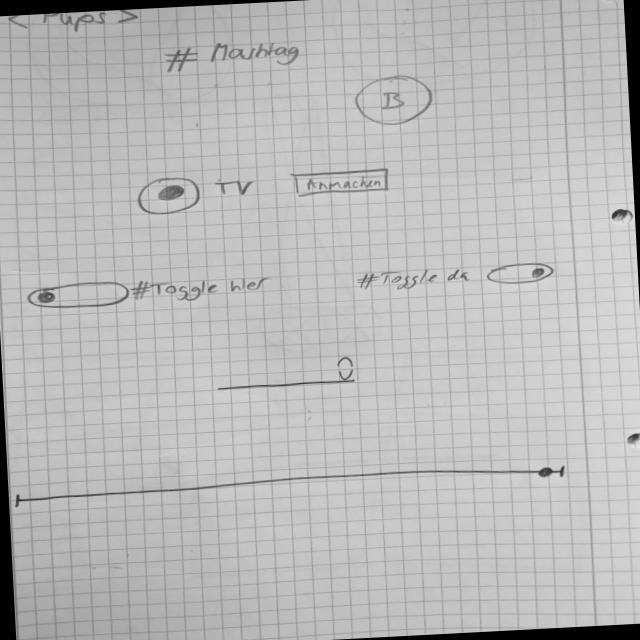 < Pups >
# Hashtag
B
TV Anmachen
#Toggle hier #Toggle da
0